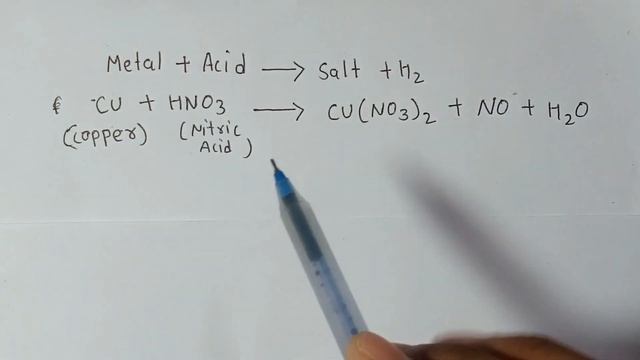 Metal + Acid → Salt + H2
CU + HNO3 → CU(NO3)2 + NO + H2O
(Copper) (Nitric
Acid)